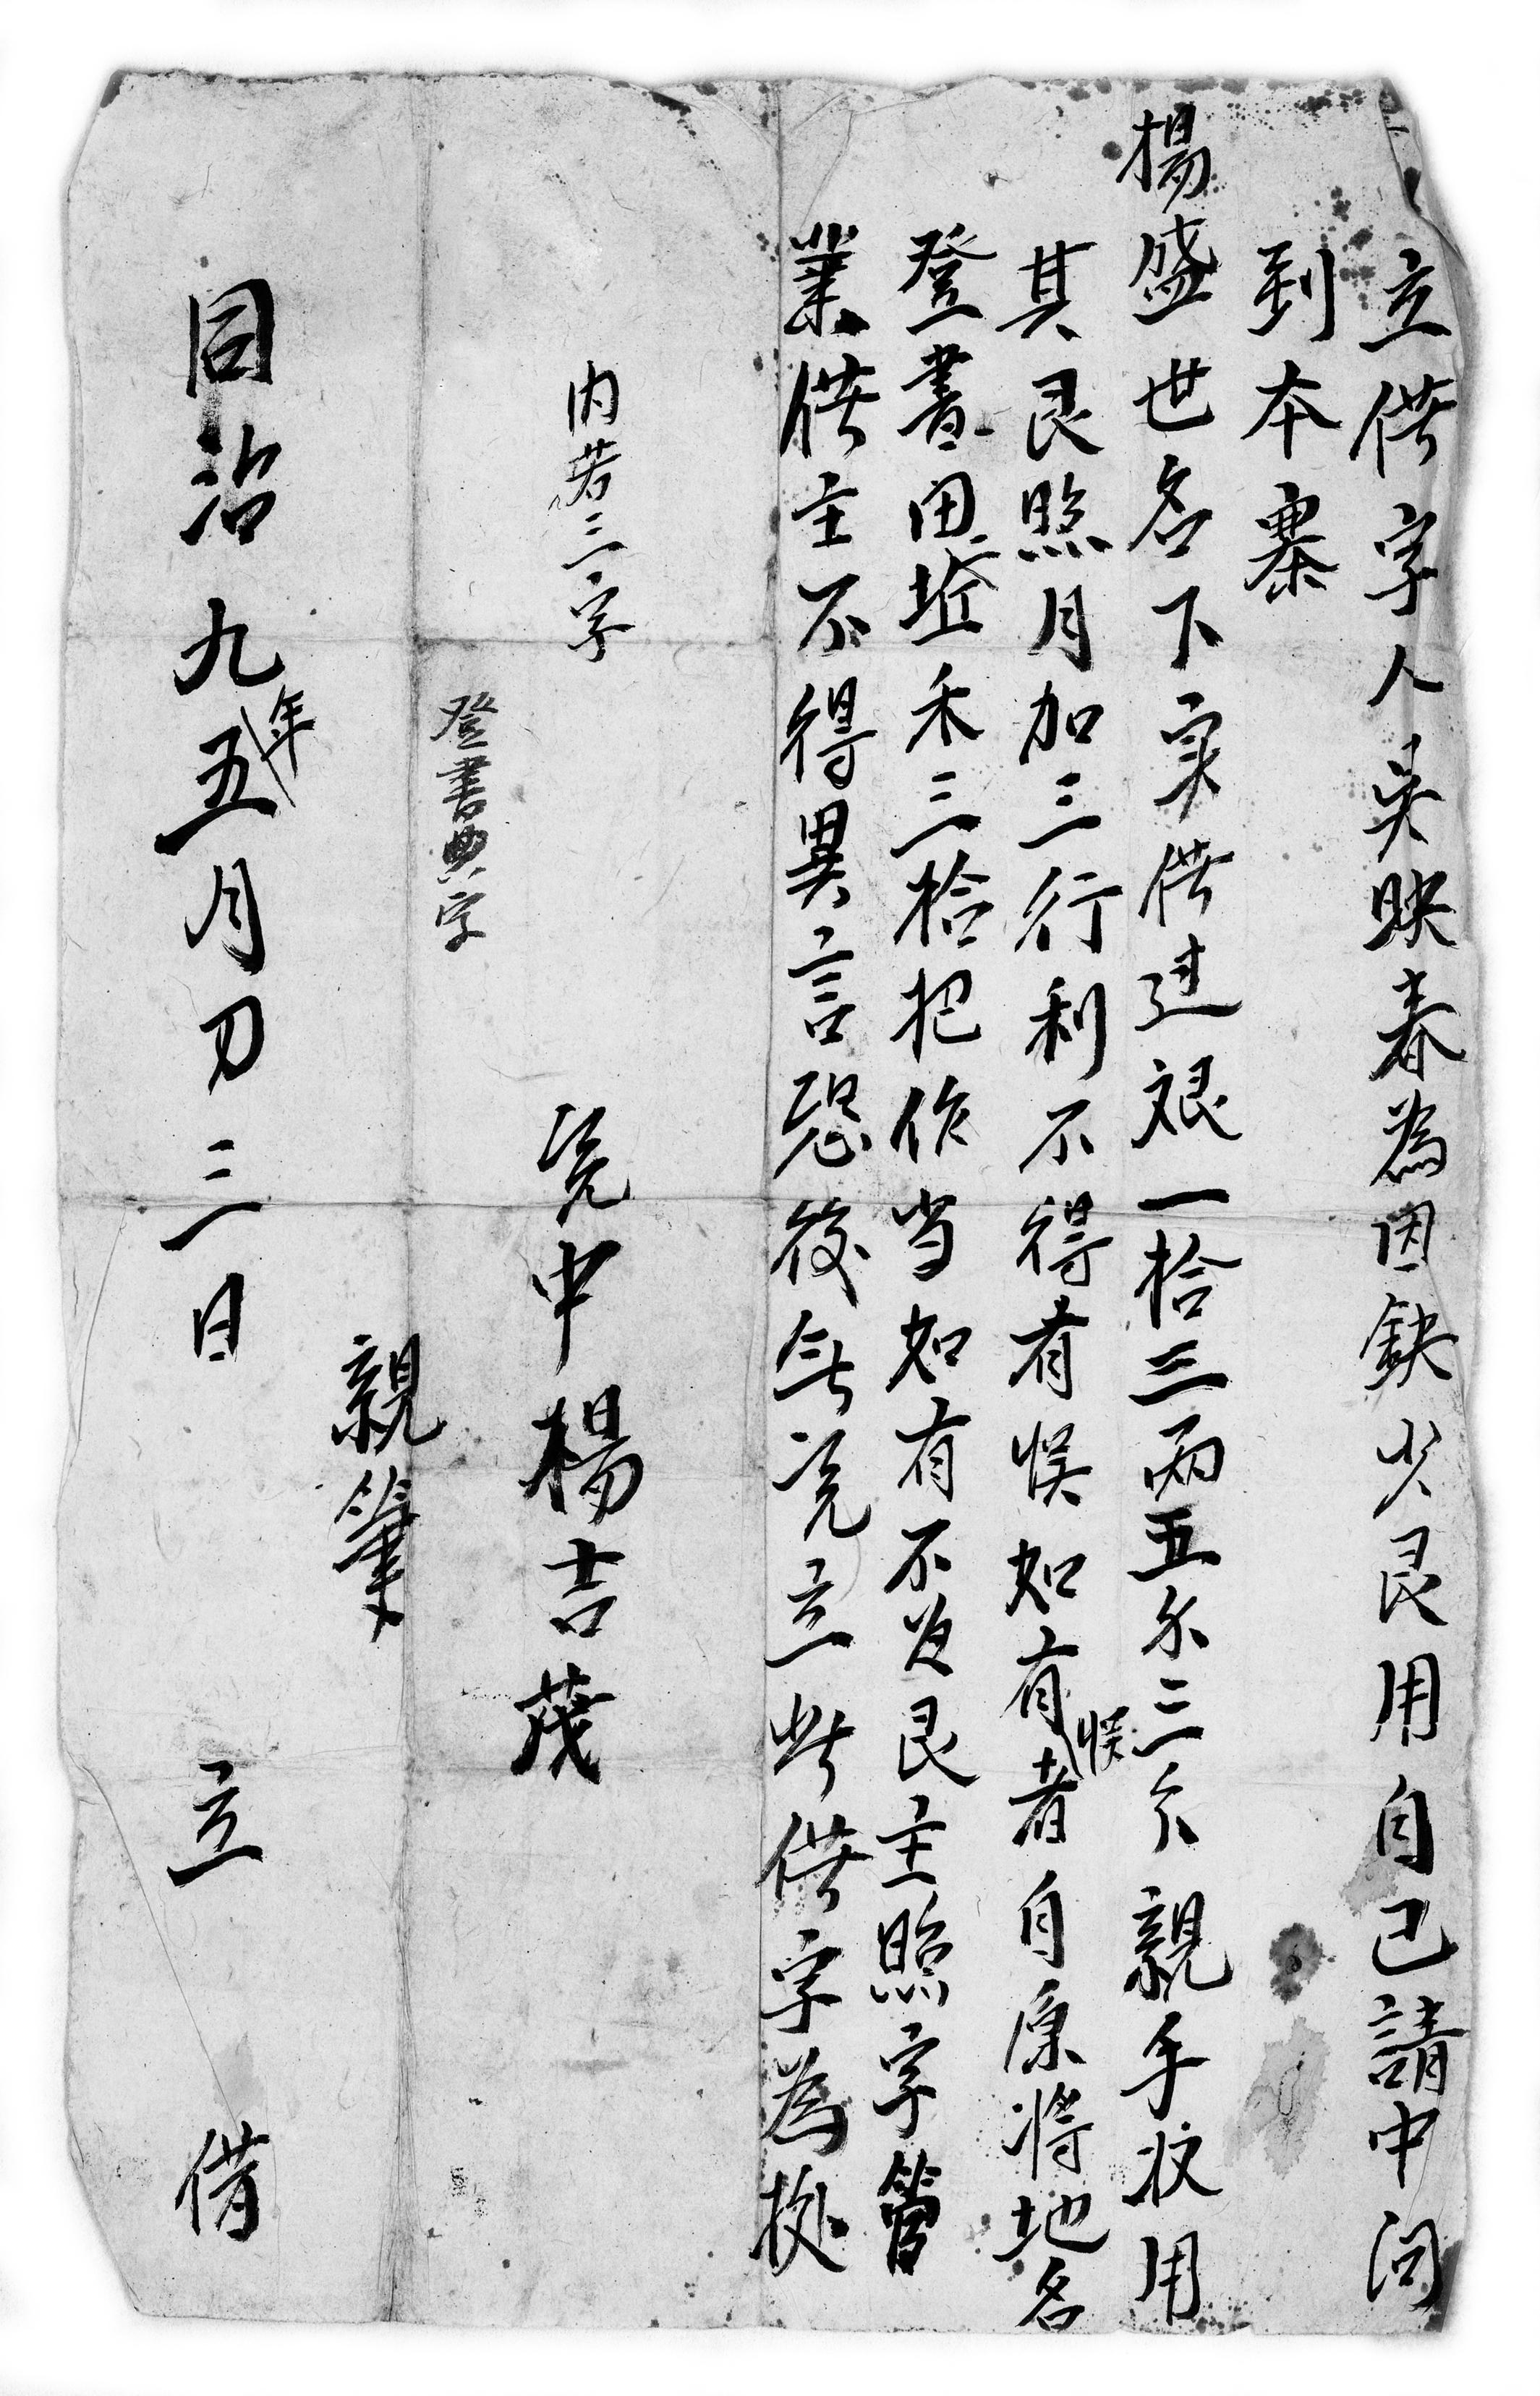 立借字人吴映春為因缺少艮用自己請中问
到本寨
楊盛世名下实借过艮一拾三兩五尒三分親手收用
其艮照月加三行利不得有悮如有悮者自愿將地名
登書田坵禾三拾把作当如有不为艮主照字管
業借主不得異言恐後无凭立此借字為據
内若三字
凭中楊吉茂
登書典字
親筆
同治九年五月初三日 立 借